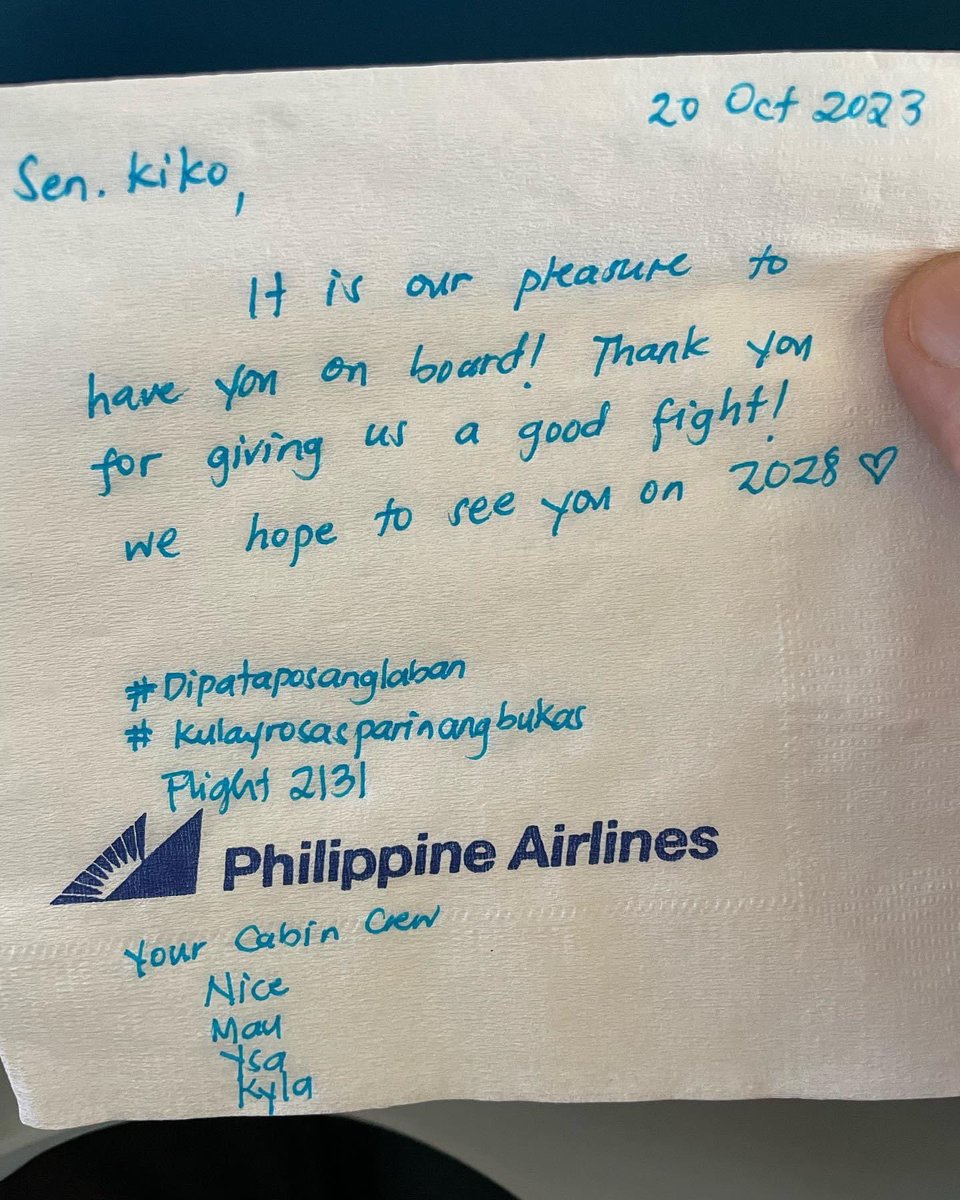 20 Oct 2023
Sen. Kiko,
It is our pleasure to
have you on board! Thank you
for giving us a good fight!
we hope to see you on 2028 ♡
#Dipataposanglaban
# kulayrosasparinangbukas
Flight 2131
Philippine Airlines
Your Cabin Crew
Nice
May
Ysa
Kyla